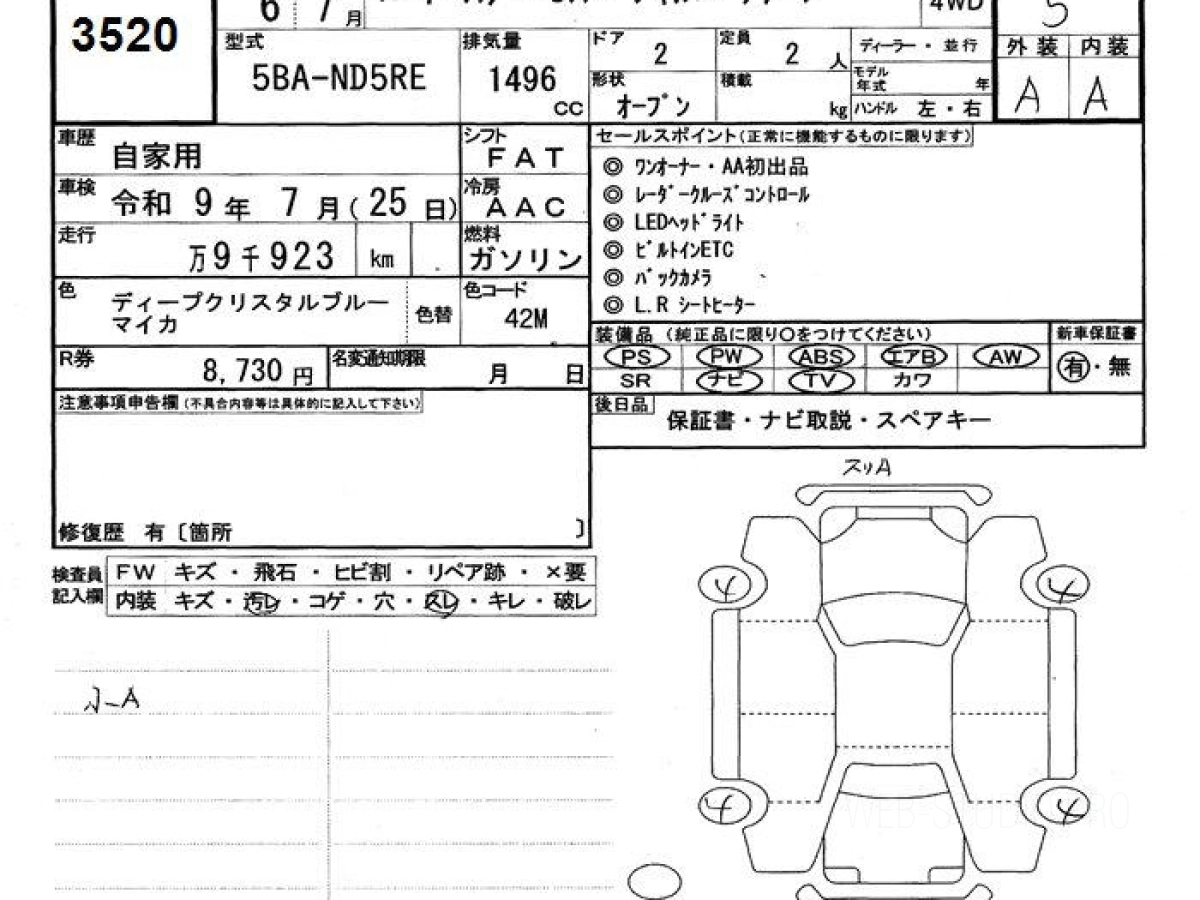 3520
6 7月
4WD
5
型式 5BA-ND5RE
排気量 1496 CC
ドア 2
定員 2 人
ディーラー・並行
外装 内装
形状 オープン
積載 kg
モデル年式 年
ハンドル 左・右
A A
車歴 自家用
シフト FAT
車検 令和 9年 7月(25日)
冷房 AAC
走行 万9千923 km
燃料 ガソリン
色 ディープクリスタルブルー
マイカ
色替
色コード 42M
R券 8,730円
名変通知期限 月 日
セールスポイント(正常に機能するものに限ります)
◎ ワンオーナー・AA初出品
◎ レーダークルーズコントロール
◎ LEDヘッドライト
◎ ビルトインETC
◎ バックカメラ
◎ L.R シートヒーター
装備品 (純正品に限り○をつけてください)
新車保証書
PS PW ABS エアB AW
SR ナビ TV カワ
有・無
後日品 保証書・ナビ取説・スペアキー
注意事項申告欄(不具合内容等は具体的に記入して下さい)
修復歴 有〔箇所 〕
検査員
記入欄
FW キズ・飛石・ヒビ割・リペア跡・×要
内装 キズ・汚レ・コゲ・穴・スレ・キレ・破レ
スリA
4 4
4 4